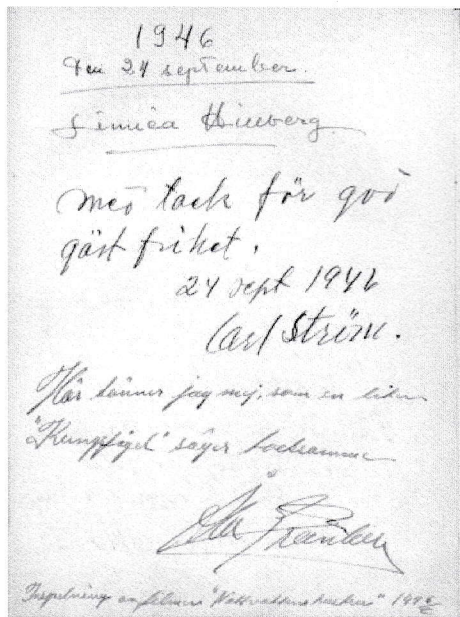 1946
Den 24 september.
Linnéa Hillberg
med tack för god
gästfrihet.
24 sept 1946
Carl Ström.
Här känner jag mej, som en liten
"Kungsfågel" säger
Inspelning av filmen "Nattvaktens hustru" 1946